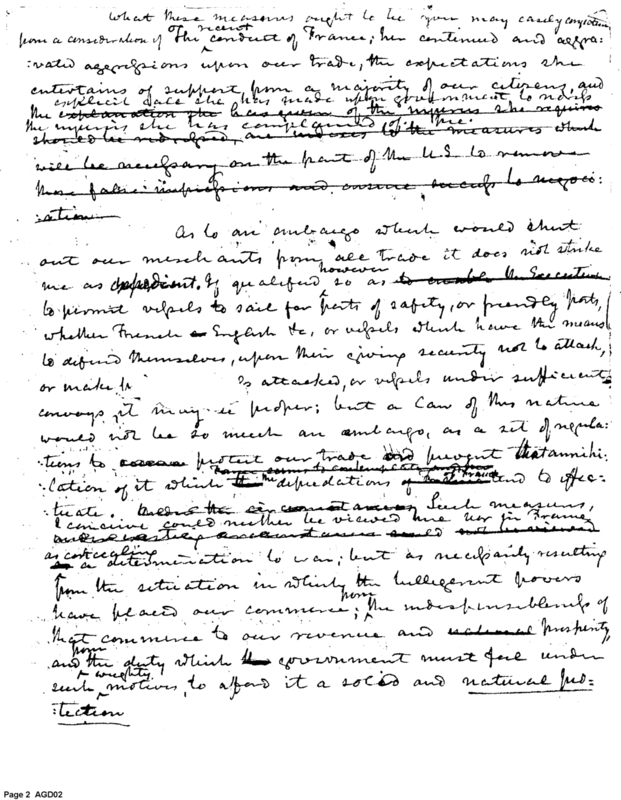 What these measures ought to be you may easily conjecture
from a consideration of the recent conduct of France; her continued and aggra:
:vated aggressions upon our trade, the expectations she
entertains of support, from a majority of our citizens, and
explicit she has made upon government to
the explanation she has given of the injuries she requires
the injuries she has complained of
should be redressed, are to the measures which
will be necessary on the part of the U.S. to remove
these false impressions and ensure success to negoci:
:ation
As to an embargo which would shut
out our merchants from all trade it does not strike
me as expedient. If qualified however so as to enable the Executive
to permit vessels to sail for ports of safety, or friendly ports,
whether French or English &c, or vessels which have the means
to defend themselves, upon their giving security not to attack,
or make attacked, or vessels under sufficient
convoys it may be proper; but a Law of this nature
would not be so much an embargo, as a set of regula:
:tions to protect our trade and prevent that annihi:
:lation of it which the depredations of France tend to effec:
:tuate. Under the circumstances Such measures,
I conceive could neither be viewed here nor in France
as a determination to war; but as necessarily resulting
from the situation in which the belligerent powers
have placed our commerce; from the indispensibleness of
that commerce to our revenue and national prosperity,
and from the duty which the government must feel under
such weighty motives, to afford it a solid and natural pro:
:tection
Page 2 AGD02